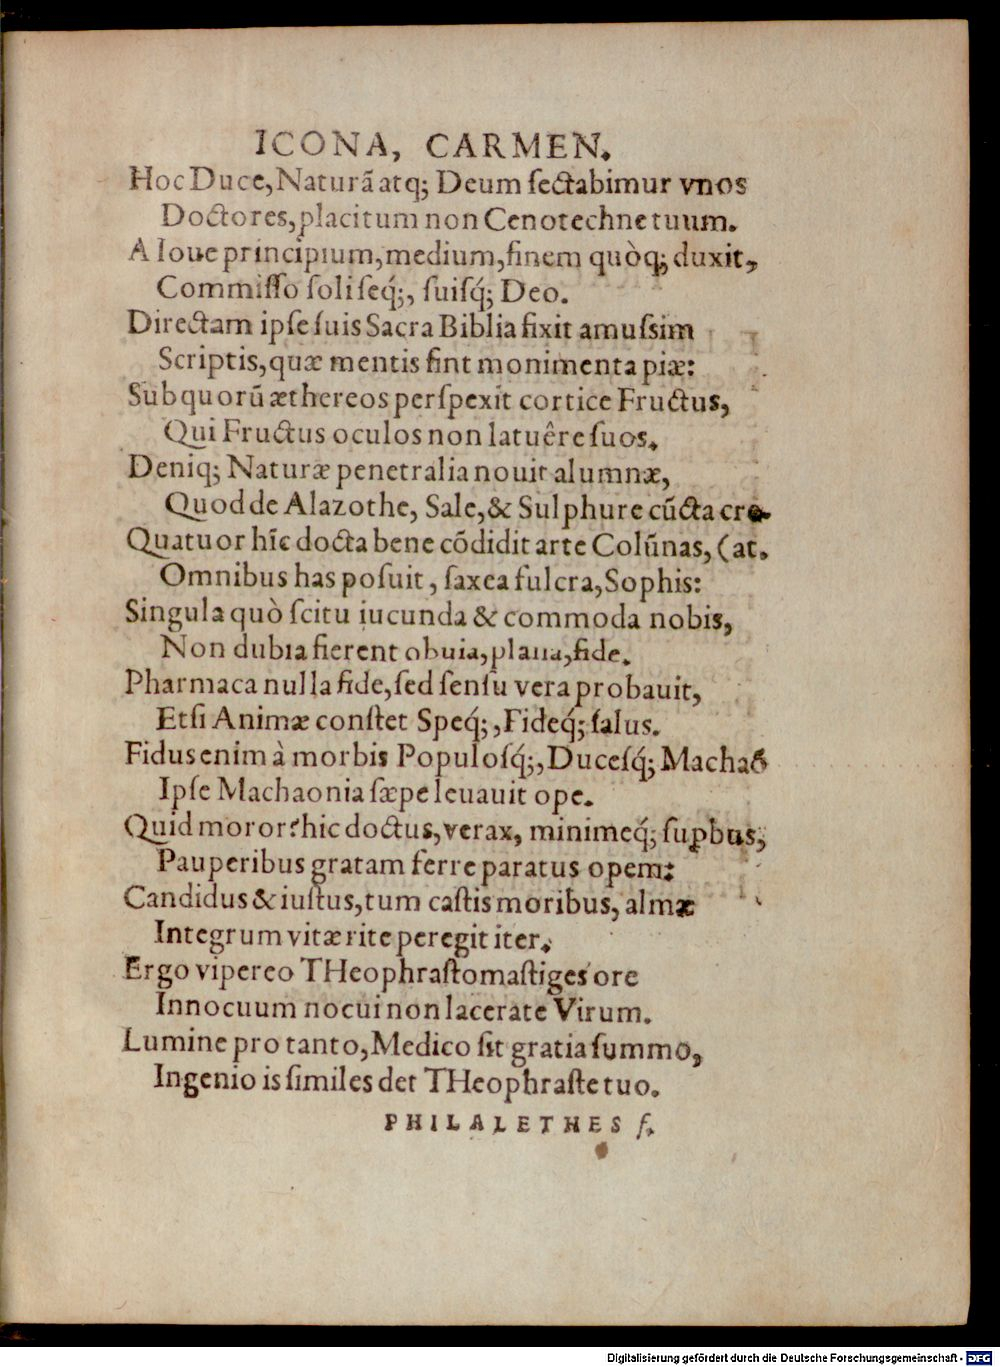 ICONA, CARMEN.
Hoc Duce, Naturã atq; Deum ſectabimur vnos
Doctores, placitum non Cenotechne tuum.
A Ioue principium, medium, finem quòq; duxit,
Commiſſo ſoli ſeq́;, ſuiſq́; Deo.
Directam ipſe ſuis Sacra Biblia fixit amuſsim
Scriptis, quæ mentis ſint monimenta piæ:
Sub quorũ æthereos perſpexit cortice Fructus,
Qui Fructus oculos non latuêre ſuos.
Deniq; Naturæ penetralia nouit alumnæ,
Quod de Alazothe, Sale, & Sulphure cũcta cre-
Quatuor hîc docta bene cõdidit arte Colũnas, (at.
Omnibus has poſuit, ſaxea fulcra, Sophis:
Singula quò ſcitu iucunda & commoda nobis,
Non dubia fierent obuia, plana, fide.
Pharmaca nulla fide, ſed ſenſu vera probauit,
Etſi Animæ conſtet Speq́;, Fideq́; ſalus.
Fidus enim à morbis Populoſq́;, Duceſq́; Machaõ
Ipſe Machaonia ſæpe leuauit ope.
Quid moror? hic doctus, verax, minimeq́; ſuꝑbus,
Pauperibus gratam ferre paratus opem:
Candidus & iuſtus, tum caſtis moribus, almæ
Integrum vitæ rite peregit iter.
Ergo vipereo THeophraſtomaſtiges ore
Innocuum nocui non lacerate Virum.
Lumine pro tanto, Medico ſit gratia ſummo,
Ingenio is ſimiles det THeophraſte tuo.
PHILALETHES f.
Digitalisierung gefördert durch die Deutsche Forschungsgemeinschaft - DFG